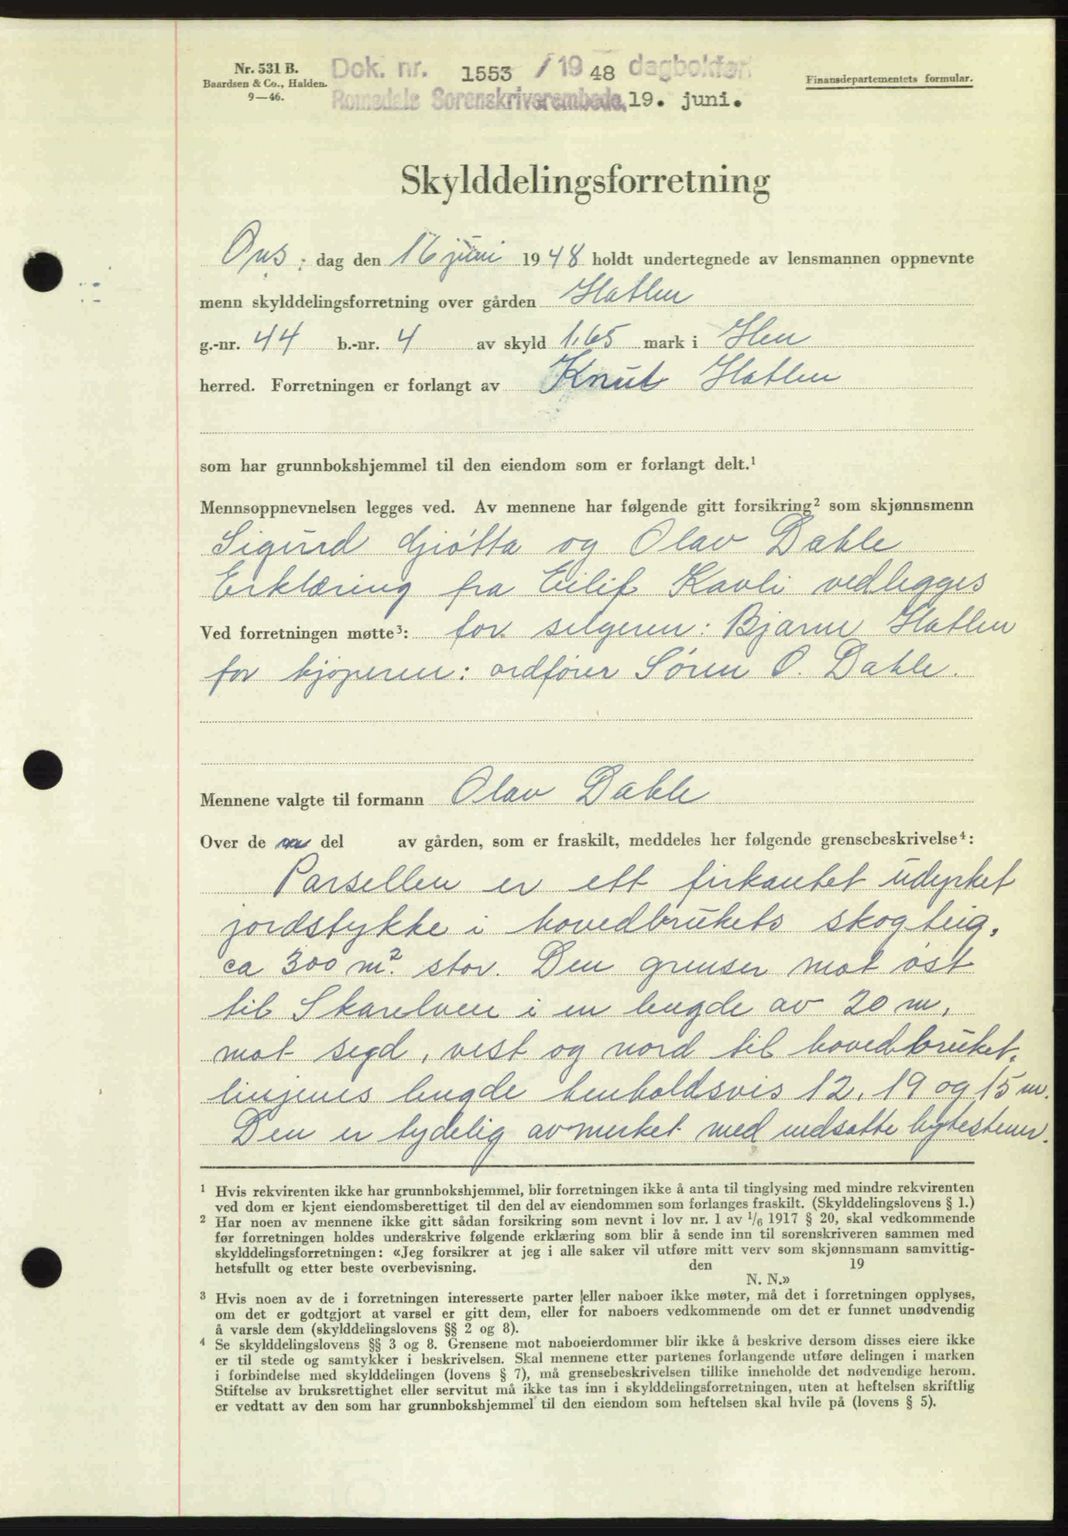 Nr. 531 B.
Baardsen & Co., Halden.
9—46.
Dok. nr. 1553 / 19 48 dagbokført
Romsdals Sorenskriverembede, 19. juni.
Finansdepartementets formular.
Skylddelingsforretning
Ons. dag den 16 juni 1948 holdt undertegnede av lensmannen oppnevnte
menn skylddelingsforretning over gården Hatlen
g.-nr. 44 b.-nr. 4 av skyld 1,65 mark i Hen
herred. Forretningen er forlangt av Knut Hatlen
som har grunnbokshjemmel til den eiendom som er forlangt delt.¹
Mennsoppnevnelsen legges ved. Av mennene har følgende gitt forsikring² som skjønnsmenn
Sigurd Gjøtta og Olav Dahle
Erklæring fra Eilif Kavli vedlegges
Ved forretningen møtte³: for selgeren: Bjarne Hatlen
for kjøperen: ordfører Søren O. Dahle.
Mennene valgte til formann Olav Dahle
Over de del av gården, som er fraskilt, meddeles her følgende grensebeskrivelse⁴:
Parsellen er ett firkantet udyrket
jordstykke i hovedbrukets skogteig,
ca 300 m². stor. Den grenser mot øst
til Skarelven i en lengde av 20 m,
mot syd, vest og nord til hovedbruket,
linjenes lengde henholdsvis 12, 19 og 15 m.
Den er tydelig avmerket med nedsatte bytestener.
¹ Hvis rekvirenten ikke har grunnbokshjemmel, blir forretningen ikke å anta til tinglysing med mindre rekvirenten
ved dom er kjent eiendomsberettiget til den del av eiendommen som forlanges fraskilt. (Skylddelingslovens § 1.)
² Har noen av mennene ikke gitt sådan forsikring som nevnt i lov nr. 1 av 1/6 1917 § 20, skal vedkommende
før forretningen holdes underskrive følgende erklæring som blir å sende inn til sorenskriveren sammen med
skylddelingsforretningen: «Jeg forsikrer at jeg i alle saker vil utføre mitt verv som skjønnsmann samvittig-
hetsfullt og etter beste overbevisning. den 19
N. N.»
³ Hvis noen av de i forretningen interesserte parter eller naboer ikke møter, må det i forretningen opplyses,
om det er godtgjort at varsel er gitt dem, eller for naboers vedkommende om det er funnet unødvendig
å varsle dem (skylddelingslovens §§ 2 og 8).
⁴ Se skylddelingslovens §§ 3 og 8. Grensene mot naboeierdommer blir ikke å beskrive dersom disses eiere ikke
er til stede og samtykker i beskrivelsen. Skal mennene etter partenes forlangende utføre delingen i marken
i forbindelse med skylddelingen (lovens § 7), må grensebeskrivelsen tillike inneholde det nødvendige herom.
Stiftelse av bruksrettighet eller servitut må ikke tas inn i skylddelingsforretningen, uten at heftelsen skriftlig
er vedtatt av den som har grunnbokshjemmel til den eiendom som heftelsen skal hvile på (lovens § 5).